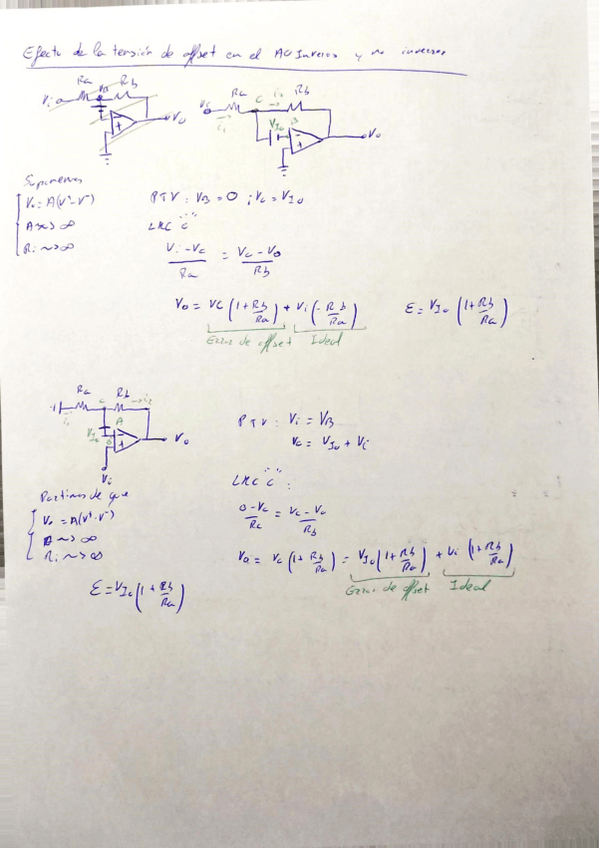 Efecto de la tensión de offset en el AO Inversor y no inversor
Ra Rb
Vi VB
Vo
Ra C i2 Rb
Vi i1
VIo B
Vo
Suponemos
Vo = A(V⁺-V⁻)
A ~> ∞
Ri ~> ∞
PTV: VB = 0 ; Vc = VIo
LKC "C"
Vi - Vc / Ra = Vc - Vo / Rb
Vo = VC (1 + Rb/Ra) + Vi (-Rb/Ra)
Error de offset Ideal
E = VIo (1 + Rb/Ra)
Ra C Rb i2
i1 A
VIo B
Vo
Vi
PTV: Vi = VB
Vc = VIo + Vi
Partimos de que
Vo = A(V⁺-V⁻)
A ~> ∞
Ri ~> ∞
LKC "C":
0 - Vc / Ra = Vc - Vo / Rb
Vo = Vc (1 + Rb/Ra) = VIo (1 + Rb/Ra) + Vi (1 + Rb/Ra)
Error de offset Ideal
E = VIo (1 + Rb/Ra)